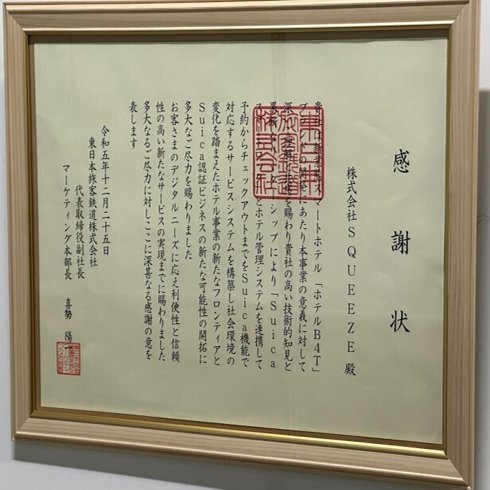 感謝状
株式会社SQUEEZE殿
スマートホテル「ホテルB4T」
にあたり本事業の意義に対して
を賜わり貴社の高い技術的知見と
シップにより「Suica
とホテル管理システムを連携して
予約からチェックアウトまでをSuica機能で
対応するサービスシステムを構築し社会環境の
変化を踏まえたホテル事業の新たなフロンティアと
Suica認証ビジネスの新たな可能性の開拓に
多大なご尽力を賜わりました
お客さまのデジタルニーズに応え利便性と信頼
性の高い新たなサービスの実現までに賜わりました
多大なるご尽力に対しここに深甚なる感謝の意を
表します
令和五年十二月二十五日
東日本旅客鉄道株式会社
代表取締役副社長
マーケティング本部長 喜㔟 陽一